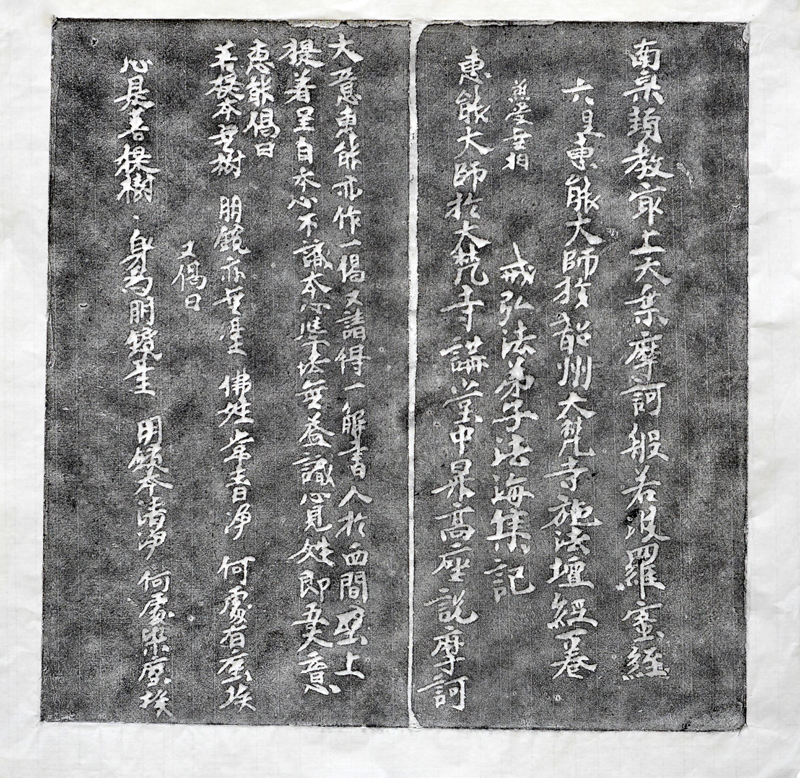 南宗頓教最上大乘摩訶般若波羅蜜經
六祖惠能大師於韶州大梵寺施法壇經一卷
兼受無相
戒弘法弟子法海集記
惠能大師於大梵寺講堂中昇高座説摩訶
大意惠能亦作一偈又請得一解書人於西間壁上
提着呈自本心不識本心學法無益識心見姓即吾大意
惠能偈曰
菩提本無樹 明鏡亦無臺 佛姓常青淨 何處有塵埃
又偈曰
心是菩提樹 身為明鏡臺 明鏡本清淨 何處染塵埃